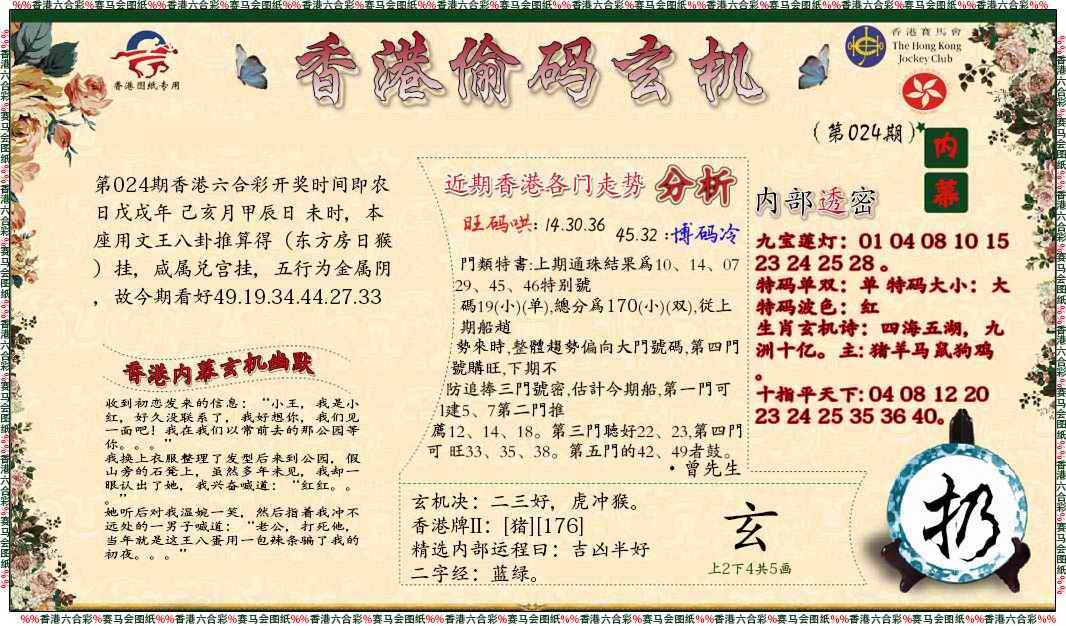 %%香港六合彩%赛马会图纸%%香港六合彩%赛马会图纸%%香港六合彩%赛马会图纸%%香港六合彩%赛马会图纸%%香港六合彩%赛马会图纸%%香港六合彩%赛马会图纸%%香港六合彩%赛马会图纸%%香港六合彩%%
香港图纸专用
香港偷码玄机
香港賽馬會
The Hong Kong
Jockey Club
(第024期)
内
幕
第024期香港六合彩开奖时间即农
日戊戌年 己亥月甲辰日 未时，本
座用文王八卦推算得（东方房日猴
）挂，咸属兑宫挂，五行为金属阴
，故今期看好49.19.34.44.27.33
香港内幕玄机幽默
收到初恋发来的信息：“小王，我是小
红，好久没联系了，我好想你，我们见
一面吧！我在我们以常前去的那公园等
你。。。”
我换上衣服整理了发型后来到公园，假
山旁的石凳上，虽然多年未见，我却一
眼认出了她，我兴奋喊道：“红红。。
。”
她听后对我温婉一笑，然后指着我冲不
远处的一男子喊道：“老公，打死他，
当年就是这王八蛋用一包辣条骗了我的
初夜。。。”
近期香港各门走势 分析
旺码哄: 14.30.36
45.32 :博码冷
門類特書:上期通珠結果爲10、14、07
29、45、46特别號
碼19(小)(单),總分爲170(小)(双),從上
期船趙
勢來時,整體趨勢偏向大門號碼,第四門
號購旺,下期不
防追捧三門號密,估計今期船,第一門可
1建5、7第二門推
薦12、14、18。第三門聽好22、23,第四門
可 旺33、35、38。第五門的42、49者鼓。
·曾先生
内部透密
九宝莲灯：01 04 08 10 15
23 24 25 28 。
特码单双：单 特码大小：大
特码波色：红
生肖玄机诗：四海五湖，九
洲十亿。主: 猪羊马鼠狗鸡
。
十指平天下: 04 08 12 20
23 24 25 35 36 40。
玄机决：二三好，虎冲猴。
香港牌II：[猪][176]
精选内部运程曰：吉凶半好
二字经：蓝绿。
玄
上2下4共5画
扔
%%香港六合彩%赛马会图纸%%香港六合彩%赛马会图纸%%香港六合彩%赛马会图纸%%香港六合彩%赛马会图纸%%香港六合彩%赛马会图纸%%香港六合彩%赛马会图纸%%香港六合彩%赛马会图纸%%香港六合彩%%